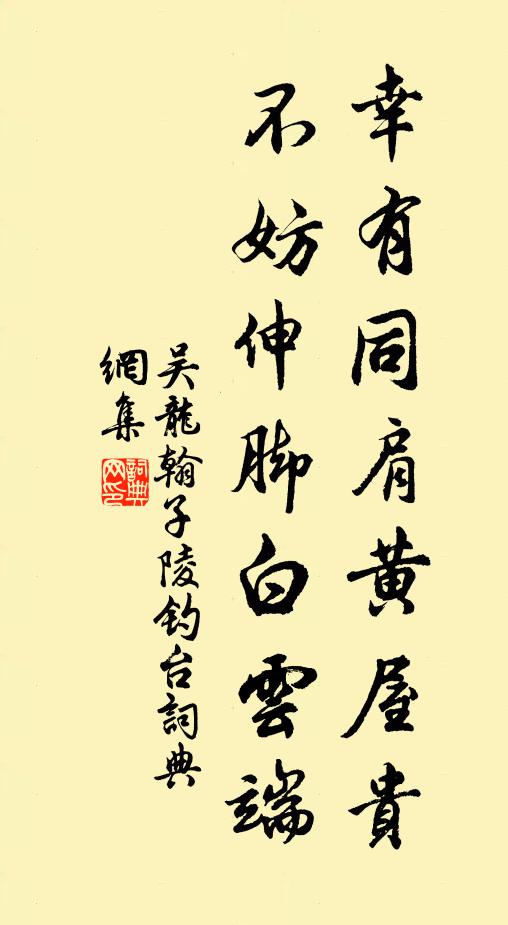 幸有同肩黄屋貴
不妨伸脚白雲端
吴龍翰子陵钓台詞典
網集
詞典
网印